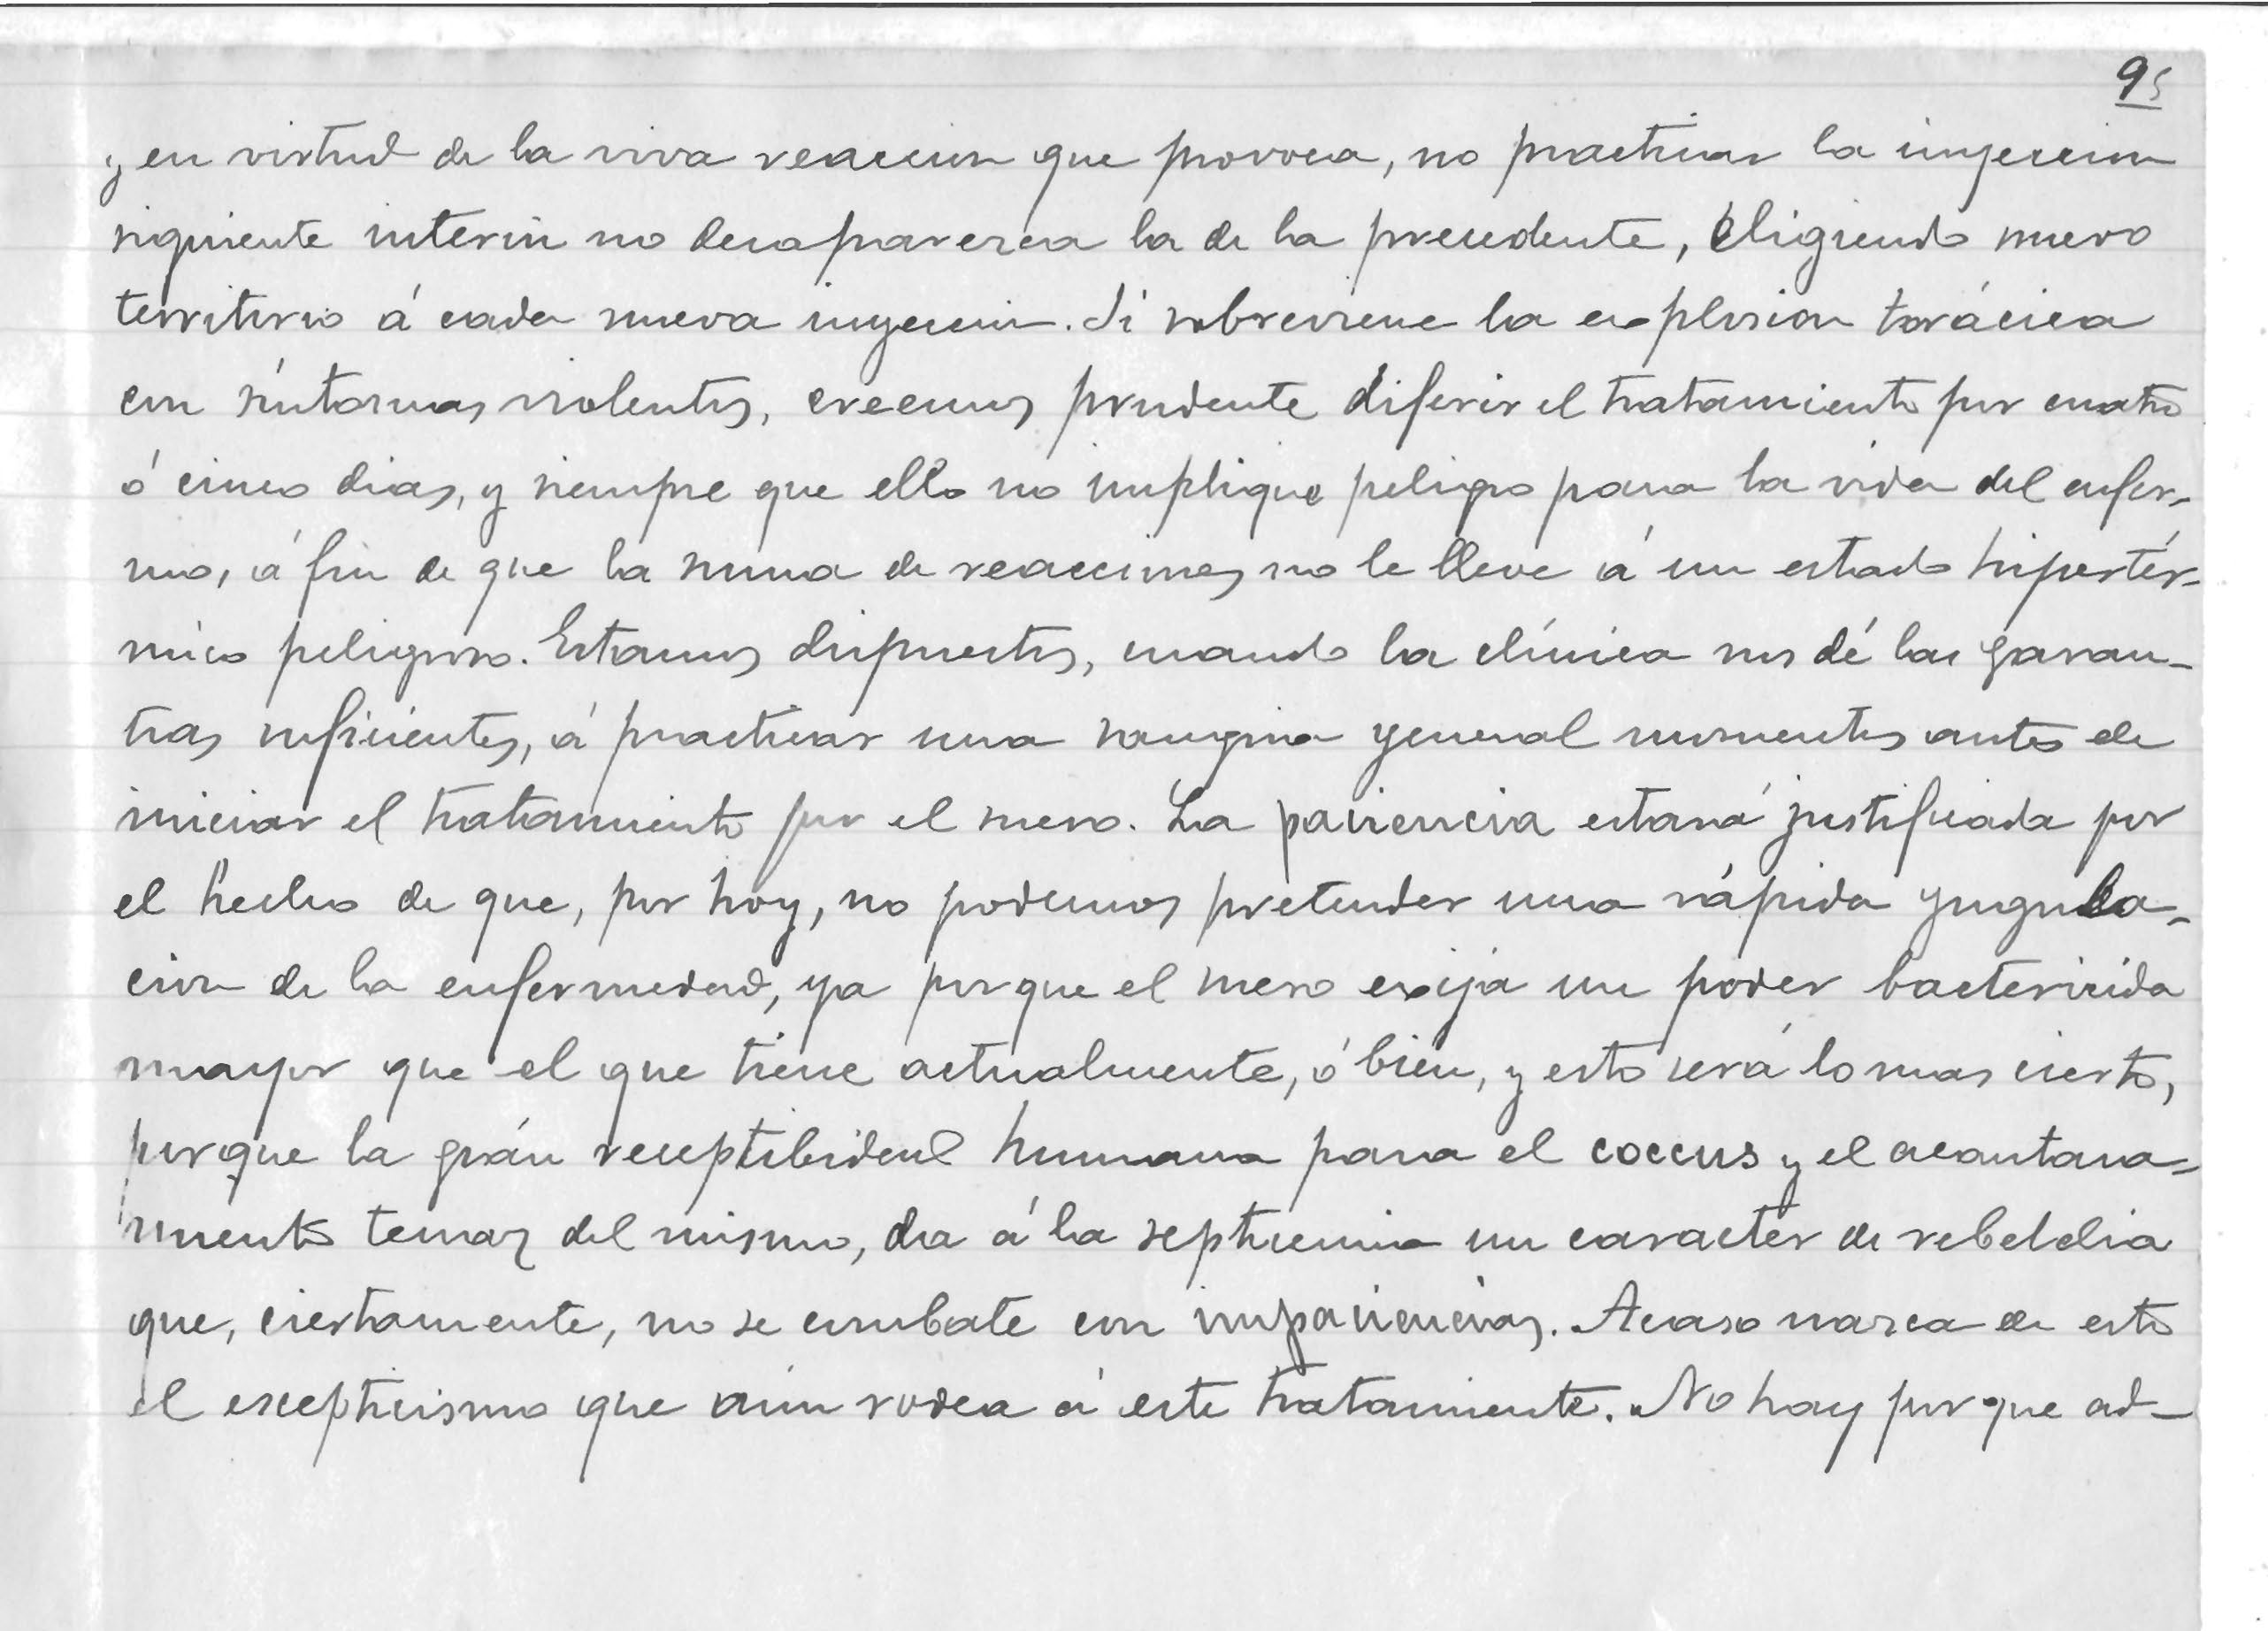 95
y en virtud de la viva reaccion que provoca, no practicar la inyeccion
siguiente interin no desaparezca la de la precedente, eligiendo nuevo
territorio á cada nueva inyeccion. Si sobreviene la explosion torácica
con síntomas violentos, creemos prudente diferir el tratamiento por cuatro
ó cinco dias, y siempre que ello no implique peligro para la vida del enfer-
mo, á fin de que la suma de reacciones no le lleve á un estado hipertér-
mico peligroso. Estamos dispuestos, cuando la clínica nos dé las garan-
tias suficientes, á practicar una sangria general momentos antes de
iniciar el tratamiento por el suero. La paciencia estará justificada por
el hecho de que, por hoy, no podemos pretender una rápida yugula-
cion de la enfermedad, ya porque el suero exija un poder bactericida
mayor que el que tiene actualmente, ó bien, y esto será lo mas cierto,
porque la grán receptibidad humana para el coccus y el acantona-
miento tenaz del mismo, da á la septicemia un caracter de rebeldia
que, ciertamente, no se combate con impaciencias. Acaso nazca de esto
el escepticismo que aún rodea á este tratamiento. No hay por que ad-